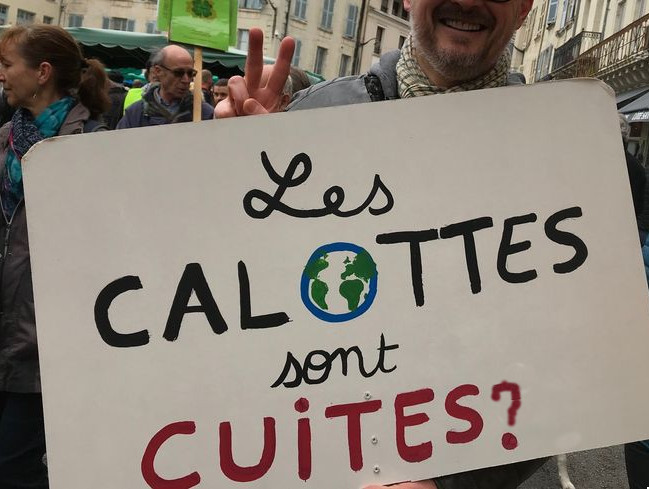 Les
CALOTTES
sont
CUITES?